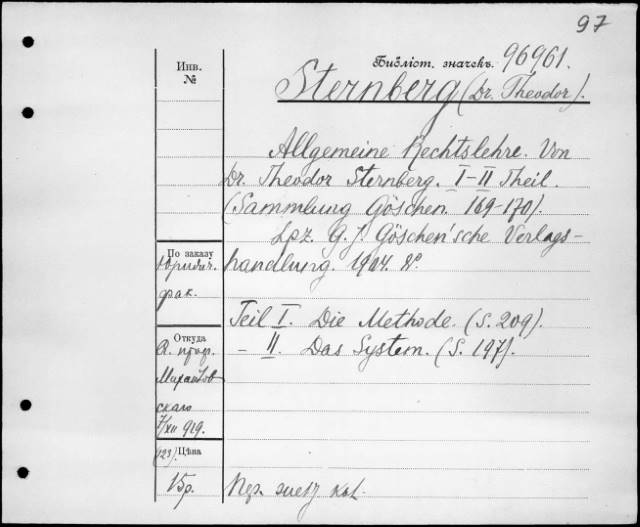 97
Библіот. значекъ. 96961.
Инв.
№
Sternberg (Dr. Theodor).
Allgemeine Rechtslehre. Von
Dr. Theodor Sternberg. I-II Theil.
(Sammlung Göschen. 169-170).
Lpz. G. J. Göschen'sche Verlags-
handlung. 1904. 8°.
По заказу
Юридич.
фак.
Teil I. Die Methode. (S. 209).
- II. Das System. (S. 197).
Откуда
проф.
Михайлов
скаго
7/XII 919.
Цѣна
15р.